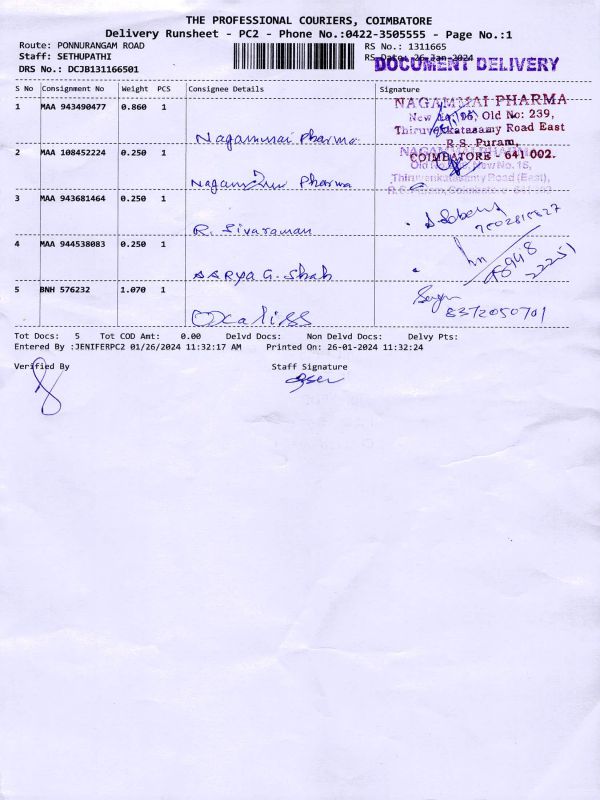 THE PROFESSIONAL COURIERS, COIMBATORE
Delivery Runsheet - PC2 - Phone No.:0422-3505555 - Page No.:1
Route: PONNURANGAM ROAD
RS No.: 1311665
Staff: SETHUPATHI
RS Date: 26-Jan-2024
DOCUMENT DELIVERY
DRS No.: DCJB131166501
S No Consignment No Weight PCS Consignee Details Signature
1 MAA 943490477 0.860 1
Nagammai Pharma
NAGAMMAI PHARMA
New No: 16, Old No: 239,
Thiruvenkatasamy Road East
R.S. Puram,
COIMBATORE - 641 002.
2 MAA 108452224 0.250 1
Pharma
NAGAMMAI PHARMA
New No.16,
Thiruvenkatasamy Road (East),
3 MAA 943681464 0.250 1
R. Sivaraman
4 MAA 944538083 0.250 1
AARYA G. Shah
5 BNH 576232 1.070 1
8372050701
Tot Docs: 5 Tot COD Amt: 0.00 Delvd Docs: Non Delvd Docs: Delvy Pts:
Entered By :JENIFERPC2 01/26/2024 11:32:17 AM Printed On: 26-01-2024 11:32:24
Verified By Staff Signature